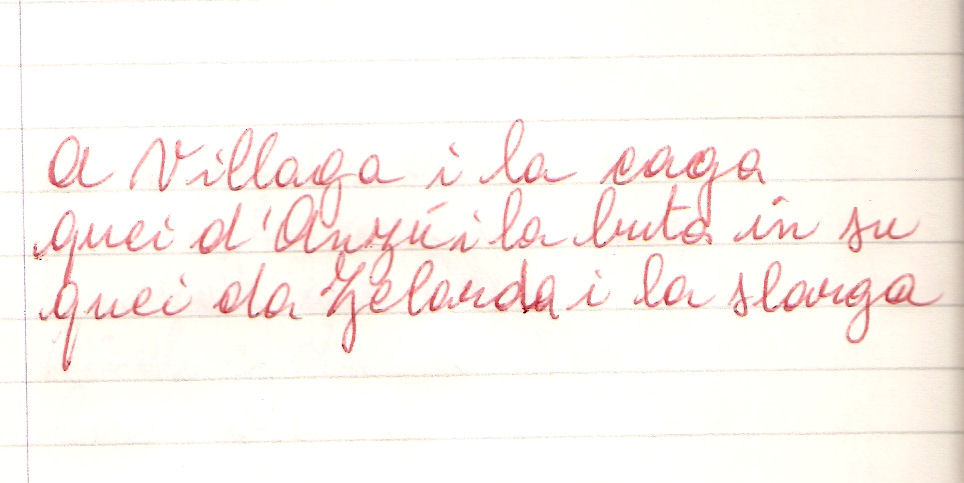 A Villaga i la caga
quei d'Anzú i la buta in su
quei da Zelarda i la slarga